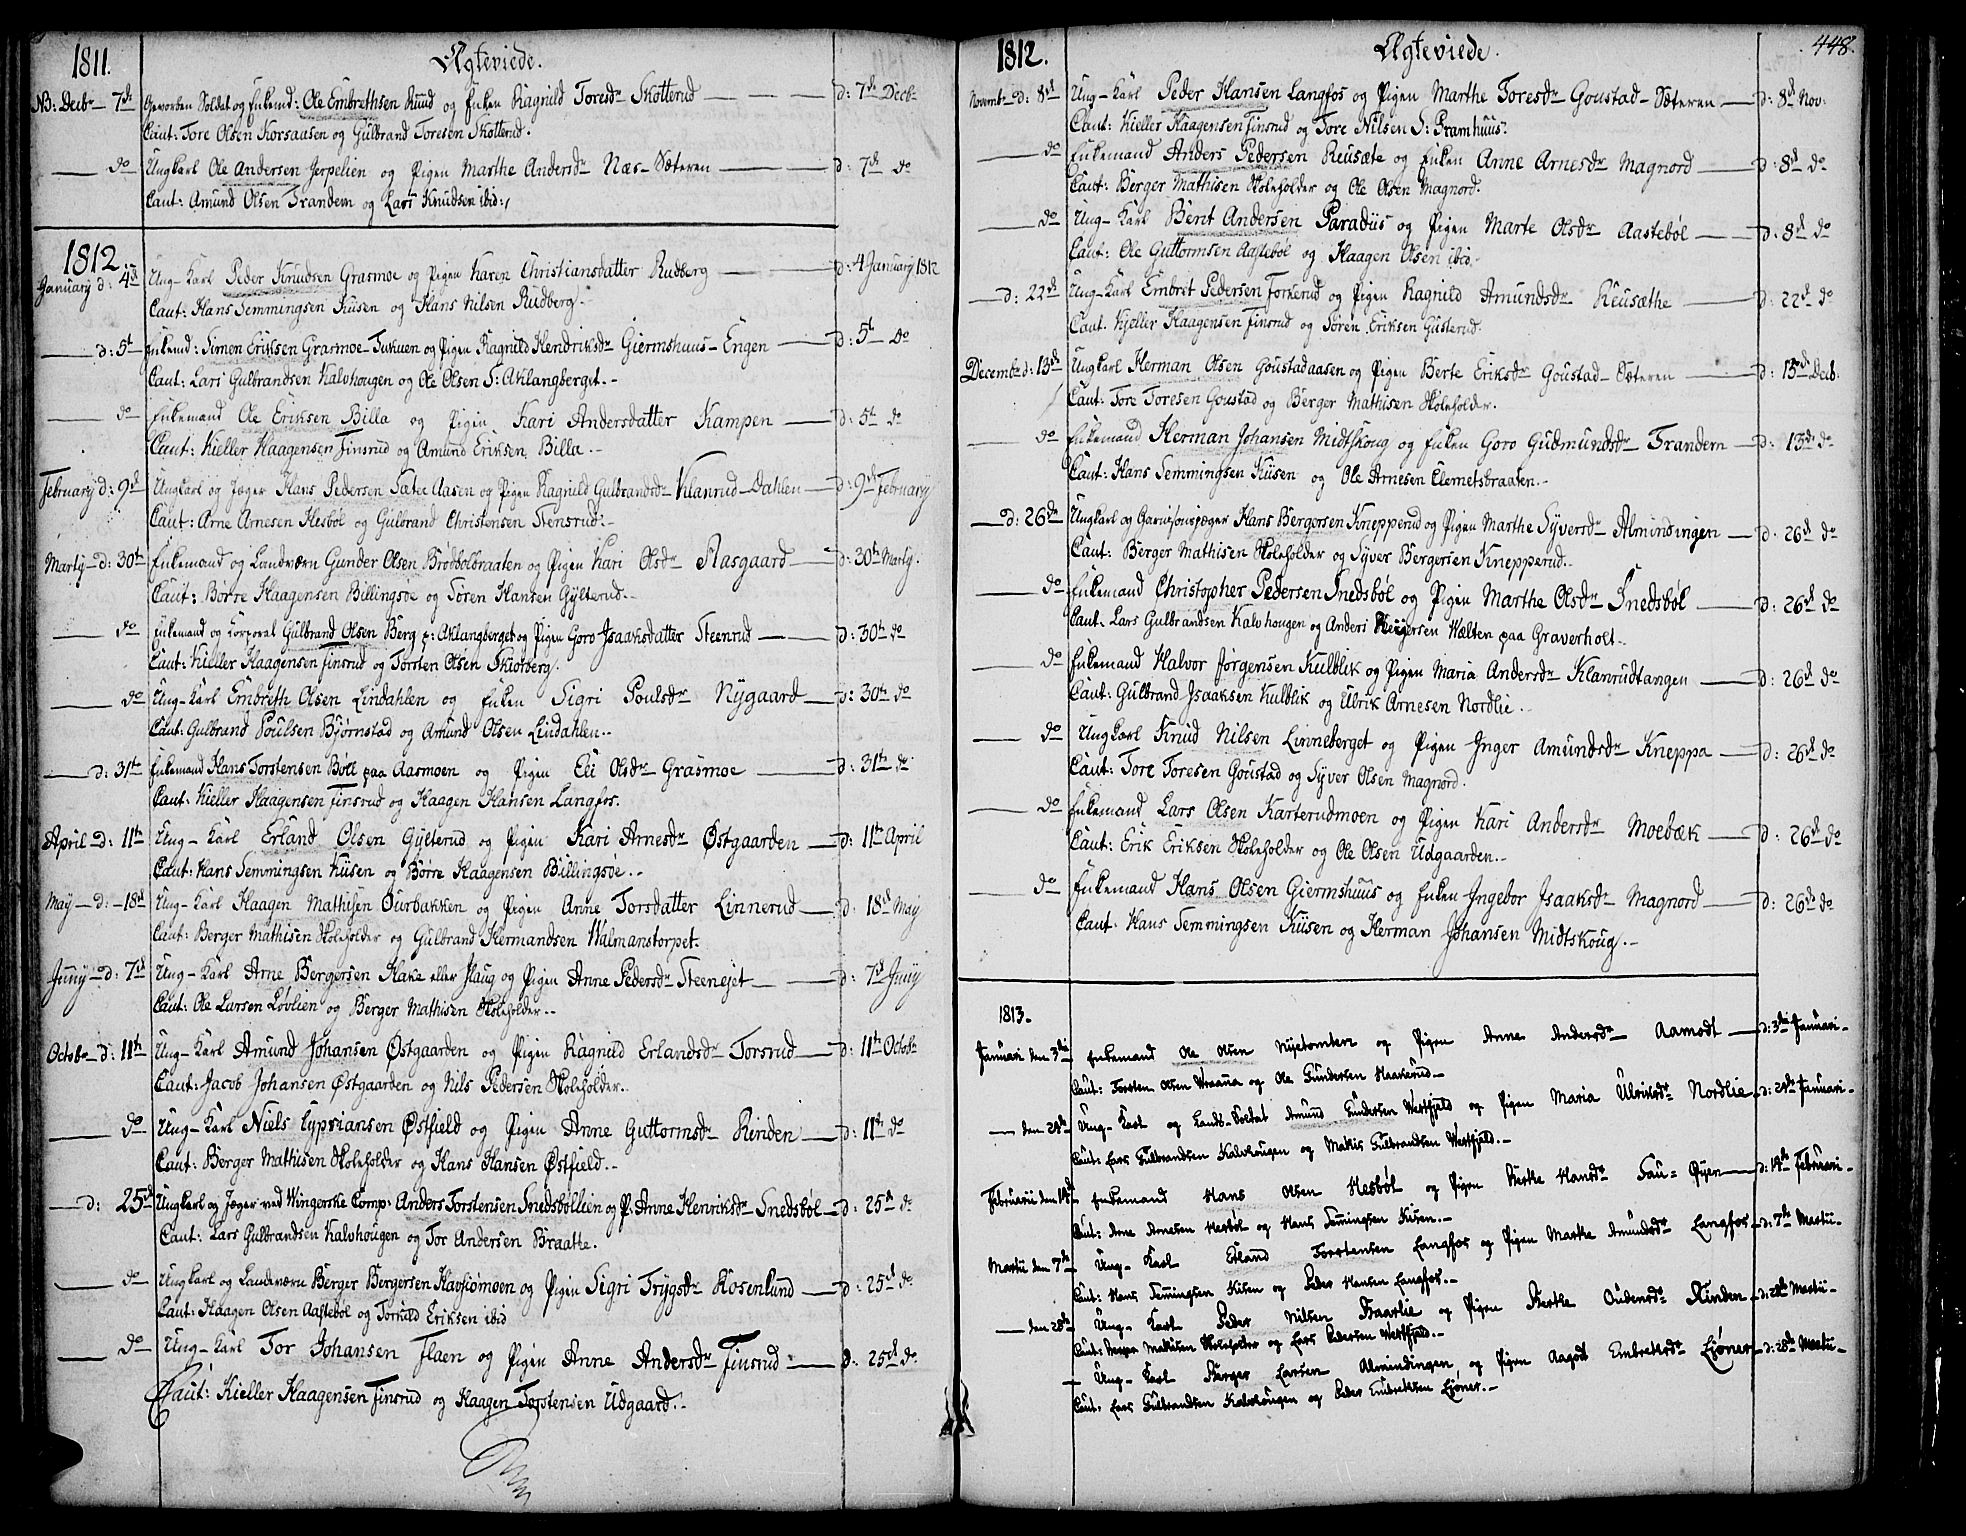 1811.
Ægteviede.
No: Decbr 7de Geworben Soldat og Enkemd: Ole Embrethsen Ruud og Enken Ragnild Toresdr Skotterud — d: 7de Decbr
Caut: Tore Olsen Korsaasen og Gulbrand Toresen Skotterud.
— do Ungkarl Ole Andersen Jerpelien og Pigen Marthe Andersdr Næs-Sæteren — d: 7de do
Caut: Amund Olsen Trandem og Lars Knudsen ibid:
1812.
January d: 4de Ung-Karl Peder Knudsen Grasmoe og Pigen Karen Christiansdatter Rudberg — d: 4 January 1812
Caut: Hans Semmingsen Kiisen og Hans Nilsen Rudberg.
— d: 5t Enkemd: Simon Eriksen Grasmoe- og Pigen Ragnild Hendriksdr Giermshuus-Engen — d: 5t do
Caut: Lars Gulbrandsen Kalvhougen og Ole Olsen S: Aklangberget.
— do Enkemand Ole Eriksen Billa og Pigen Kari Andersdatter Kampen — d: 5t do
Caut: Kieller Haagensen Finsrud og Amund Eriksen Billa.
February d: 9d Ungkarl og Jæger Hans Pedersen Sæter Aasen og Pigen Ragnild Gulbrandsdr Vilanrud-Dahlen — d: 9de February
Caut: Arne Arnesen Hesbøl og Gulbrand Christensen Stensrud.
Martj d: 30th Enkemand og Landværn Gunder Olsen Brødbølbraaten og Pigen Kari Olsdr Aasgaard — d: 30th Martj.
Caut: Børre Haagensen Billingsøe og Søren Hansen Gylterud.
— do Enkemand og Korporal Gulbrand Olsen Berg p: Aklangberget og Pigen Goro Isaaksdatter Steenrud — d: 30th do
Caut: Kieller Haagensen Finsrud og Torsten Olsen Skiolberg.
— do Ung-Karl Embreth Olsen Lindahlen og Enken Sigri Poulsdr Nygaard — d: 30th do
Caut: Gulbrand Poulsen Bjørnstad og Amund Olsen Lindahlen.
— d: 31th Enkemand Hans Torstensen Bøll paa Aasmoen og Pigen Eli Olsdr Grasmoe — d: 31th do
Caut: Kieller Haagensen Finsrud og Haagen Hansen Langfos.
April d: 11th Ung-Karl Erland Olsen Gylterud og Pigen Kari Arnesdr Østgaarden — d: 11th April
Caut: Hans Semmingsen Kiisen og Børre Haagensen Billingsøe.
May d: 18d Ung-Karl Haagen Mathisen Burbakken og Pigen Anne Torsdatter Linnerud — d: 18d May
Caut: Berger Mathisen Skoleholder og Gulbrand Hermandsen Walmanstorpet.
Juny d: 7d Ung-Karl Arne Bergersen Hake eller Haug og Pigen Anne Pedersdr Steenejet — d: 7d Juny
Caut: Ole Larsen Løvlien og Berger Mathisen Skoleholder.
Octobr d: 11th Ung-Karl Amund Johansen Østgaarden og Pigen Ragnild Erlandsdr Torsrud — d: 11th Octobr
Caut: Jacob Johansen Østgaarden og Nils Pedersen Skoleholder.
— do Ung-Karl Niels Cypriansen Østfield og Pigen Anne Guttormsdr Rinden — d: 11th do
Caut: Berger Mathisen Skoleholder og Hans Hansen Østfield.
— d: 25d Ungkarl og Jæger ved Wingerske Comp: Anders Torstensen Snedsbøllien og P: Anne Henriksdr Snedsbøl — d: 25d do
Caut: Lars Gulbrandsen Kalvhougen og Tor Andersen Braatte.
— do Ungkarl og Landværn Berger Bergersen Havsiømoen og Pigen Sigri Trygsdr Rosenlund — d: 25d do
Caut: Haagen Olsen Aastebøl og Torkild Eriksen ibid
— do Ung-Karl Tor Johansen Flaen og Pigen Anne Andersdr Finsrud — d: 25d do
Caut: Kieller Haagensen Finsrud og Haagen Torstensen Udgaard.
1812.
Ægteviede.
448.
Novembr d: 8d Ung-Karl Peder Hansen Langfos og Pigen Marthe Toresdr Goustad-Sæteren — d: 8d Nov:
Caut: Kieller Haagensen Finsrud og Tore Nilsen S: Pramhuus.
— do Enkemand Anders Pedersen Reusæte og Enken Anne Arnesdr Magnord — d: 8d do
Caut: Berger Mathisen Skoleholder og Ole Olsen Magnord.
— do Ung-Karl Bent Andersen Paradiis og Pigen Marte Olsdr Aastebøl — d: 8d do
Caut: Ole Guttormsen Aastebøl og Haagen Olsen ibid
— d: 22d Ung-Karl Embret Pedersen Torkerud og Pigen Ragnild Amundsdr Reusæthe — d: 22d do
Caut. Kjeller Haagensen Finsrud og Søren Eriksen Gusterud.
Decembr d: 13de Ungkarl Herman Olsen Goustadaasen og Pigen Berte Eriksdr Goustad-Sæteren — d: 13de Decb:
Caut: Tore Toresen Goustad og Berger Mathisen Skoleholder.
— do Enkemand Herman Johansen Midtskoug og Enken Goro Gudmundsdr Trandem — d: 13de do
Caut: Hans Semmingsen Kiisen og Ole Arnesen Clemetsbraaten.
— d: 26de Ungkarl og Garnisonsjæger Hans Bergersen Knepperud og Pigen Marthe Syversdr Almindingen — d. 26d do
Caut: Berger Mathisen Skoleholder og Syver Bergersen Knepperud.
— do Enkemand Christopher Pedersen Snedsbøl og Pigen Marthe Olsdr Snedsbøl — d: 26d do
Caut: Lars Gulbrandsen Kalvhougen og Anders Bergersen Wælten paa Graverholt.
— do Enkemand Halvor Jørgensen Kulblik og Pigen Maria Andersdr Klanrudtangen — d: 26d do
Caut: Gulbrand Isaaksen Kulblik og Ulrik Arnesen Nordlie.
— do Ungkarl Knud Nilsen Linneberget og Pigen Inger Amundsdr Kneppa — d: 26d do
Caut: Tore Toresen Goustad og Syver Olsen Magnord.
— do Enkemand Lars Olsen Karterudmoen og Pigen Kari Andersdr Moebæk — d: 26d do
Caut: Erik Eriksen Skoleholder og Ole Olsen Udgaarden.
— do Enkemand Hans Olsen Giermshuus og Enken Ingebor Isaaksdr Magnord — d: 26de do
Caut: Hans Semmingsen Kiisen og Herman Johansen Midtskoug.
1813.
Januari den 3die Enkemand Ole Olsen Nyetomten og Pigen Anne Andersdr Aamodt — d: 3die Januari
Caut: Torsten Olsen Wraana og Ole Gundersen Haakerud
— den 28de Ung-Karl og Lands-Soldat Amund Gundersen Westfjeld og Pigen Maria Ulriksdr Nordlie d: 28de Januari
Caut: Lars Gulbrandsen Kalvhougen og Mathis Gulbrandsen Westfjeld.
Februarii den 14de Enkemand Hans Olsen Hesbøl og Pigen Berthe Hansdr Sau-Øyen — d: 14de Februari
Caut: Arne Arnesen Hesbøl og Hans Semingsen Kisen.
Martii den 7de Ung-Karl Erland Torstensen Langfos og Pigen Marthe Amundsdr Langfos d: 7de Martii
Caut: Hans Semingsen Kisen og Peder Hansen Langfos.
— den 28de Ung-Karl Peder Nilsen Braarlie og Pigen Berthe Oudensdr Rinden d: 28de Martii
Caut: Berger Mathisen Skoleholder og Lars Pedersen Westfjeld.
— Ung-Karl Berger Larsen Almindingen og Pigen Aagodt Embretsdr Ljøner d: 28de Martii
Caut: Lars Gulbrandsen Kalvhougen og Peder Embrethsen Ljøner.